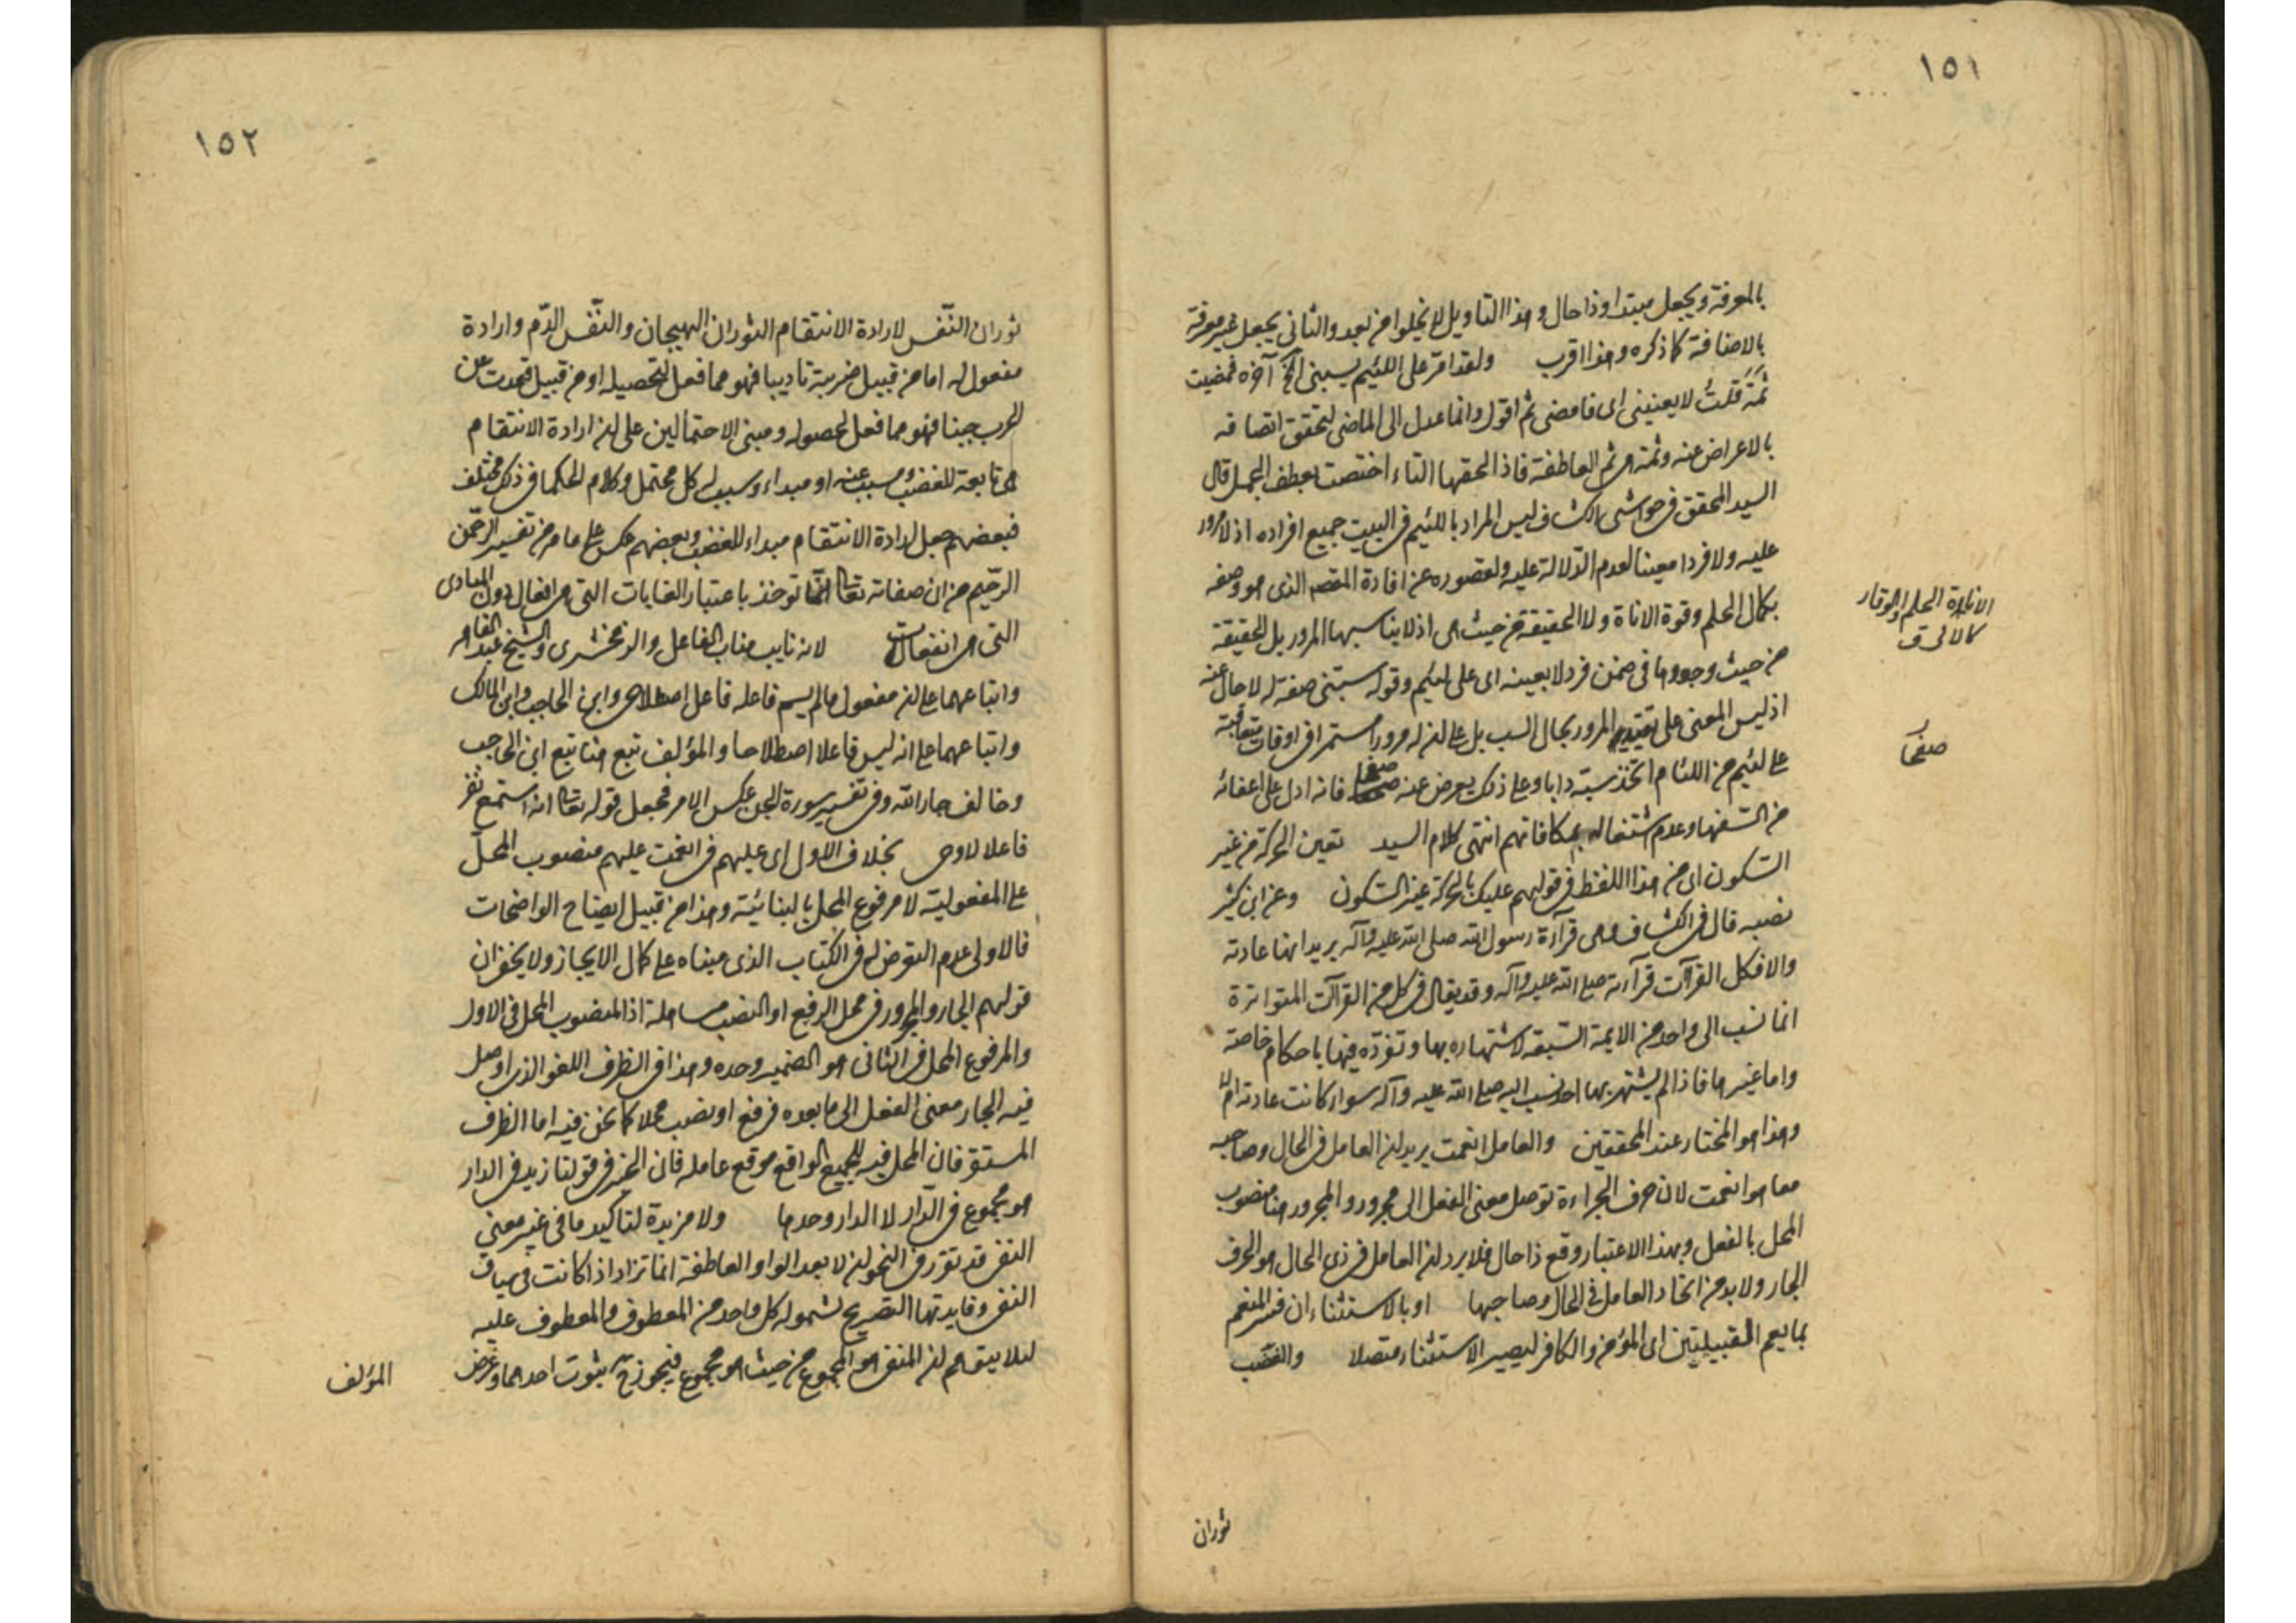 ١٥١
بالمعرفة ويجعل مبتدا وذا حال وهذا التاويل لا يخلوا من بعد والثانى يجعل غير معرفة
بالاضافة كما ذكره وهذا اقرب ولقد امرّ على اللئيم يسبنى الخ آخره فمضيت
ثمّة قلتُ لا يعنينى اى فامضى ثم اقول وانما عدل الى الماضى لتحقق اتصافه
بالاعراض عنه وثمة هى ثم العاطفة فاذا الحقها التاء اختصت بعطف الجمل قال
السيد المحقق فى حواشى الكشاف ليس المراد باللئيم فى البيت جميع افراده اذ لا مرور
عليه ولا فردا معينا لعدم الدّلالة عليه ولقصوره عن افادة المقصد الذى هو وصفه
بكمال الحلم وقوة الاناة ولا الحقيقة من حيث هى اذ لا يناسبها المرور بل الحقيقة
من حيث وجودها فى ضمن فرد لا بعينه اى على لئيم وقوله يسبنى صفة له لا حال عنه
اذ ليس المعنى على تقييد المرور بحال السب بل على ان له مرورا مستمرا فى اوقات متعاقبة
على لئيم من اللئام اتخذ سبه دابا وعلى ذلك يعرض عنه صفحا فانه ادل على اغضائه
من السفهاء وعدم اشتغاله بمكافاتهم انتهى كلام السيد تعين الحركة من غير
السكون اى من هذا اللفظ فى قولهم عليك بالحركة غير السكون وعن ابن كثير
نصبه قال فى الكشاف وهى قرآءة رسول الله صلى الله عليه وآله يريد انها عادته
والا فكل القرآآت قرآءته صلى الله عليه وآله وقد يقال فى كل من القرآآت المتواترة
انما نسب الى واحد من الايمة السبعة لاشتهاره بها وتفرّده فيها باحكام خاصة
واما غيرها فاذا لم يشتهر بها احد نسب اليه صلى الله عليه وآله سواء كانت عادته ام لا
وهذا هو المختار عند المحققين والعامل انعمت يريد ان العامل فى الحال وصاحبه
معا هو انعمت لان حرف الجر اداة توصل معنى الفعل الى مجرور والمجرور هنا منصوب
المحل بالفعل وبهذا الاعتبار وقع ذا حال فلا يرد ان العامل فى ذى الحال هو الحرف
الجار ولا بد من اتحاد العامل فى الحال وصاحبها او بالاستثناء ان فسر المنعم
بما يعم القبيلتين اى المؤمن والكافر ليصير الاستثناء متصلا والغضب
الاناءة الحلم والوقار
كالانى ق
صفحا
ثوران
١٥٢
ثوران النّفس لارادة الانتقام الثوران الهيجان والنّفس الدّم وارادة
مفعول له اما من قبيل ضربته تاديبا فهو مما فعل لتحصيله او من قبيل قعدت عن
الحرب جبنا فهو مما فعل لحصوله ومبنى الاحتمالين على ان ارادة الانتقام
هى تابعة للغضب ومسبب عنه او مبداء وسبب له كل محتمل وكلام الحكما فى ذلك مختلف
فبعضهم جعل ارادة الانتقام مبداء للغضب وبعضهم عكس على ما مر من تفسير الرّحمن
الرّحيم من ان صفاته تعالى انّما توخذ باعتبار الغايات التى هى افعال دون المبادى
التى هى انفعالات لانه نايب مناب الفاعل والزمخشرى والشيخ عبد القاهر
واتباعهما على ان مفعول ما لم يسم فاعله فاعل اصطلاحى وابن الحاجب وابن المالك
واتباعهما على انه ليس فاعلا اصطلاحا والمؤلف تبع هنا تبع ابن الحاجب
وخالف جار الله وفى تفسير سورة الجن عكس الامر فجعل قوله تعالى انه استمع نفر
فاعلا لاوحى بخلاف الاول اى عليهم فى انعمت عليهم منصوب المحلّ
على المفعولية لا مرفوع المحل بالبنائية وهذا من قبيل ايضاح الواضحات
فالاولى عدم التعرض له فى الكتاب الذى مبناه على كمال الايجاز ولا يخفى ان
قولهم الجار والمجرور فى محل الرفع او النصب مساهلة اذ المنصوب المحل فى الاول
والمرفوع المحل فى الثانى هو الضمير وحده وهذا فى الظرف اللغو الذى اوصل
فيه الجار معنى الفعل الى ما بعده فرفع او نصب محلا كما نحن فيه اما الظرف
المستقر فان المحل فيه للجميع الواقع موقع عامله فان الخبر فى قولنا زيد فى الدار
هو مجموع فى الدّار لا الدار وحدها ولا مزيدة لتاكيد ما فى غير معنى
النفى قد تقرر فى النحو ان لا بعد الواو العاطفة انما تزاد اذا كانت فى سياق
النفى وفايدتها التصريح لشموله كل واحد من المعطوف والمعطوف عليه
لئلا يتوهم ان المنفى هو المجموع من حيث هو مجموع فيجوز ح ثبوت احدهما وغرض
المؤلف